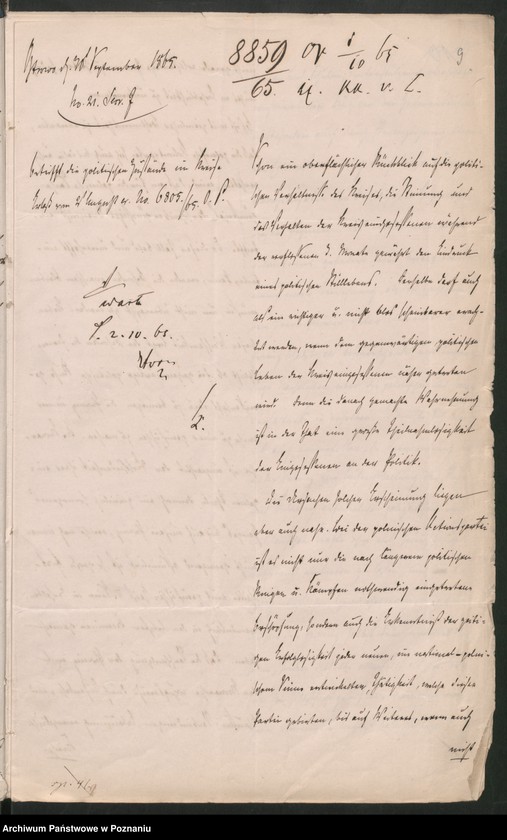 Ostrowo d. 30t September 1865.
No. 21. Secr. J
betrifft die politischen Zustände im Kreise
Erlaß vom 2 August cr. No. 6805/65. O. P.
8859 or 1/10 65
65. IX. v. L.
9
S. 2.10.65.
Schon ein oberflächlicher Rückblick auf die politi-
schen Verhältnisse des Kreises, die Stimmung und
das Verhalten der Kreiseingesessenen während
der verflossenen 3. Monate gewährt den Eindruck
eines politischen Stilllebens. Derselbe darf auch
als ein richtiger u. nicht blos scheinbarer erach-
tet werden, wenn dem gegenwärtigen politischen
Leben der Kreiseingesessenen näher getreten
wird denn die danach gemachte Wahrnehmung
ist in der That eine große Theilnahmlosigkeit
der Eingesessenen an der Politik.
Die Ursachen solcher Erscheinung liegen
aber auch nahe. Bei der polnischen Aktionspartei
ist es nicht nur die nach langem politischen
Ringen u. Kämpfen nothwendig eingetretene
Erschöpfung, sondern auch die Erkenntniß der zeiti-
gen Erfolglosigkeit jeder neuen, im national-polni-
schem Sinne entwickelten Thätigkeit, welche dieser
Partei gebieten, bis auf Weiteres, wenn auch
nicht
Archiwum Państwowe w Poznaniu